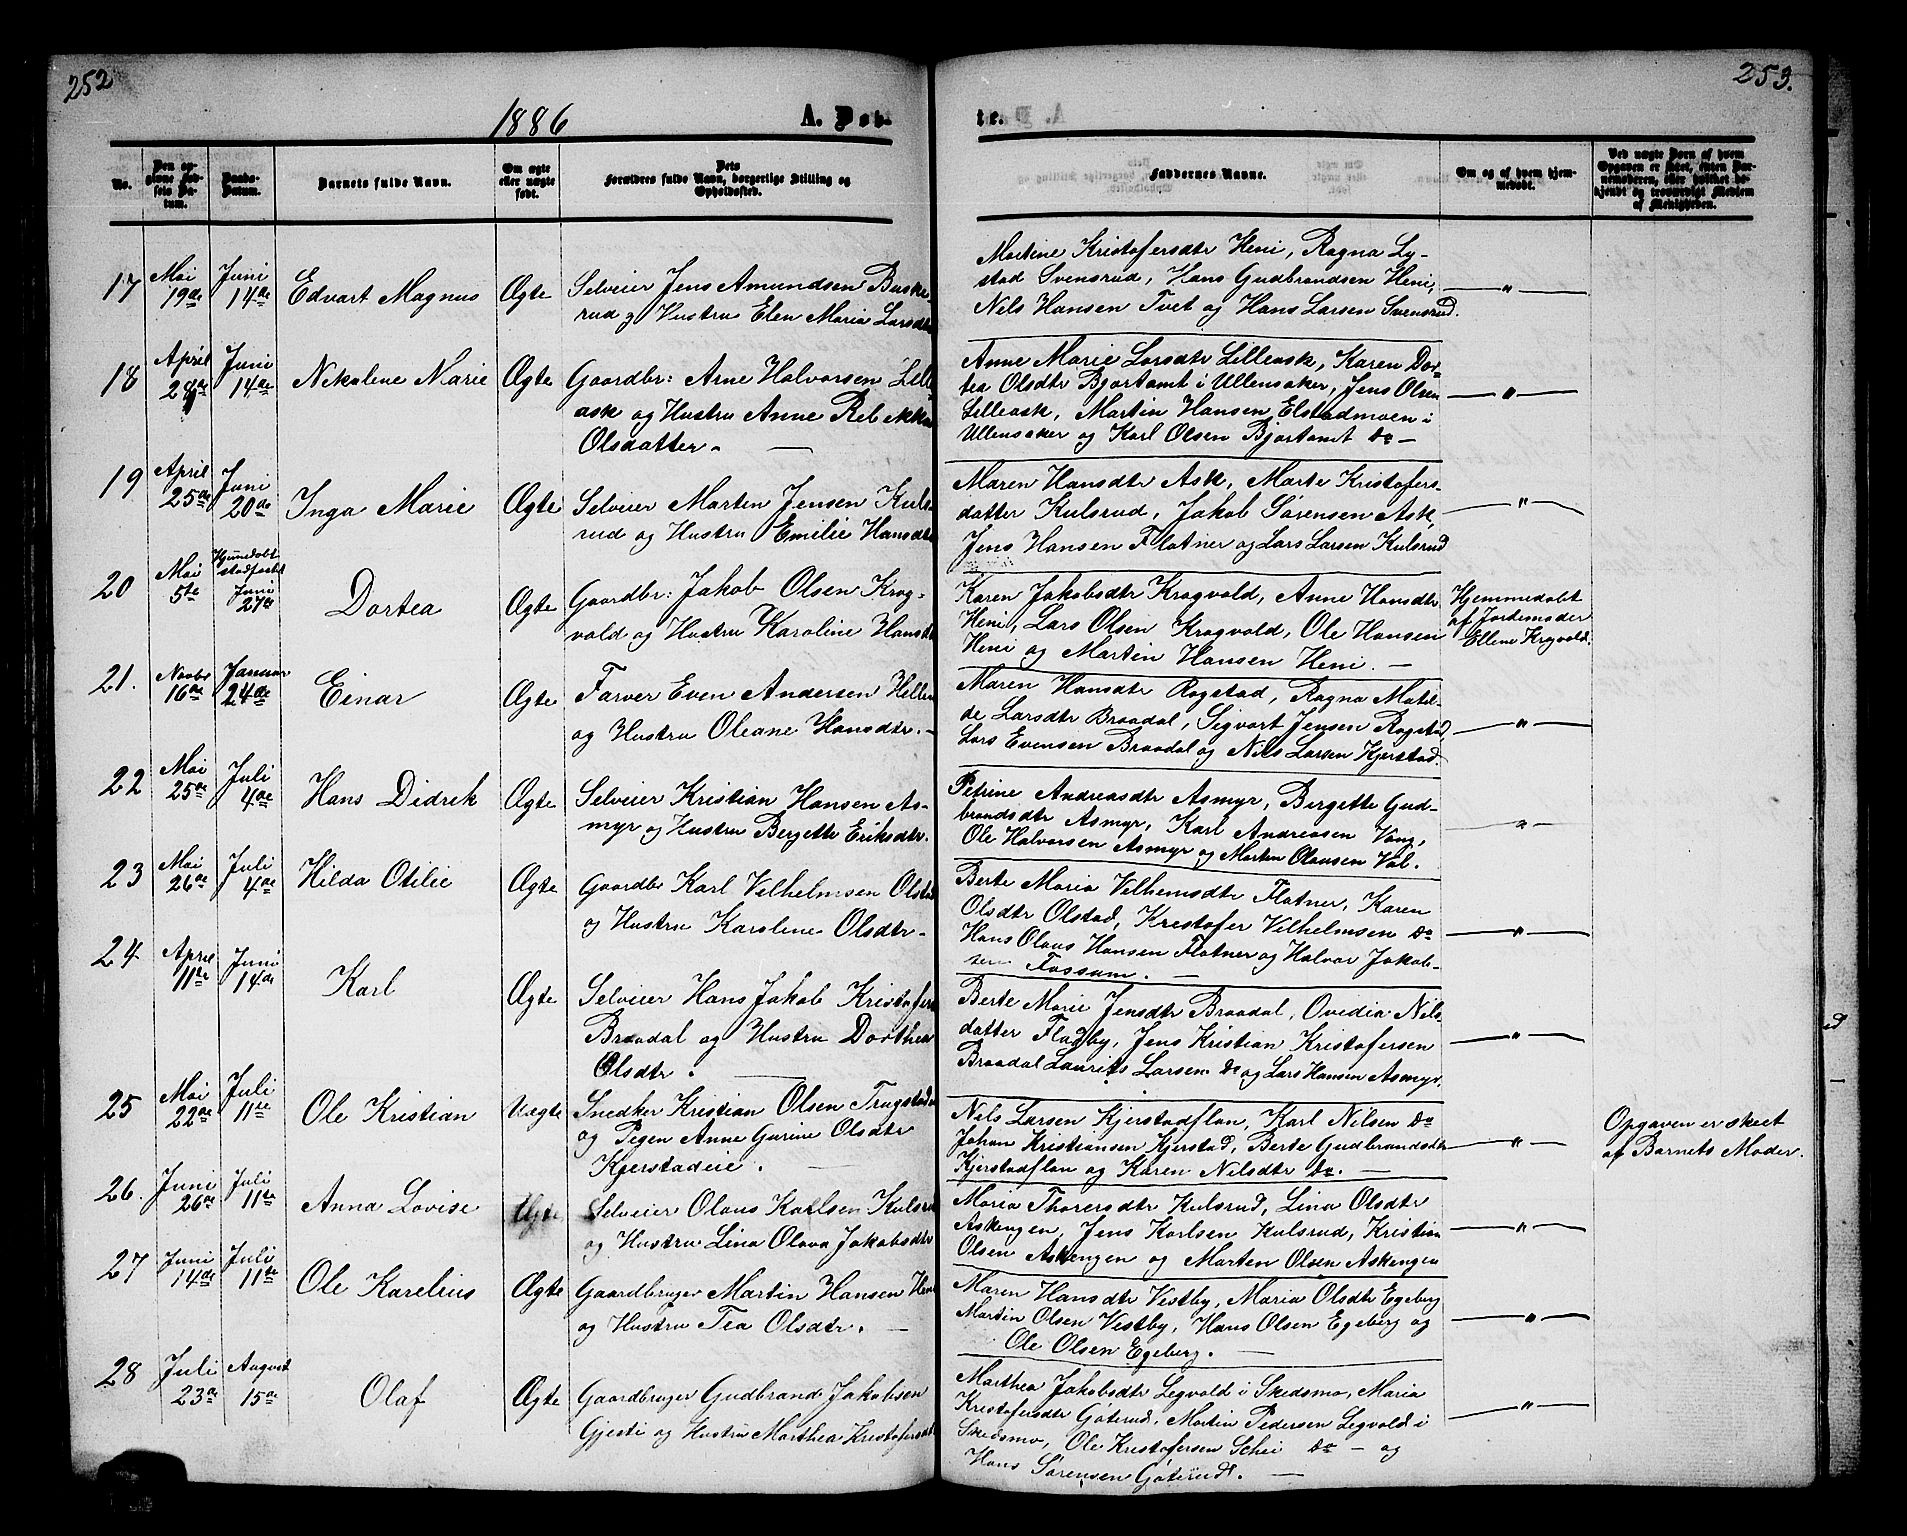 252
253.
1886
A. Døb-
te.
No.
Den op-
givne Fød-
sels Da-
tum.
Daabs-
Datum.
Barnets fulde Navn.
Om ægte
eller uægte
født.
Dets
Forældres fulde Navn, borgerlige Stilling og
Opholdssted.
Faddernes Navne.
Om og af hvem hjem-
medøbt.
Ved uægte Børn af hvem
Opgaven er skeet, enten Bar-
nemoderen, eller hvilket be-
kjendt og troværdigt Medlem
af Menigheden.
17
Mai
19de
Juni
14de
Edvart Magnus
Ægte
Selveier Jens Amundsen Buske-
rud og Hustru Elen Maria Larsdtr
Martine Kristofersdtr Heni, Ragna Ly-
stad Svensrud, Hans Gudbrandsen Heni,
Nils Hansen Tvet og Hans Larsen Svensrud.
— " —
18
April
24de
Juni
14de
Nekolene Marie
Ægte
Gaardbr: Arne Halvorsen Lille-
ask og Hustru Anne Rebekka
Olsdatter. —
Anne Marie Larsdtr Lilleask, Karen Dor-
tea Olsdtr Bjørtomt i Ullensaker, Jens Olsen
Lilleask, Martin Hansen Elstadmoen i
Ullensaker og Karl Olsen Bjørtomt do —
— " —
19
April
25de
Juni
20de
Inga Marie
Ægte
Selveier Martin Jensen Kuls-
rud og Hustru Emilie Hansdtr
Maren Hansdtr Ask, Marte Kristofers-
datter Kulsrud, Jakob Sørensen Ask,
Jens Hansen Flatner og Lars Larsen Kulsrud
— " —
20
Mai
5te
Hjemmedøbt
stadfæstet
Juni
27de
Dortea
Ægte
Gaardbr: Jakob Olsen Krog-
vold og Hustru Karoline Hansdtr
Karen Jakobsdtr Krogvold, Anne Hansdtr
Heni, Lars Olsen Krogvold, Ole Hansen
Heni og Martin Hansen Heni. —
Hjemmedøbt
af Jordemoder
Ellene Krogvold.
21.
Novbr
16de
Januar
24de
Einar
Ægte
Farver Even Andersen Hellen
og Hustru Oleane Hansdtr. —
Maren Hansdtr Rogstad, Ragna Matil-
de Larsdtr Braadal, Sigvart Jensen Rogstad,
Lars Evensen Braadal og Nils Larsen Kjerstad
— " —
22
Mai
25de
Juli
4de
Hans Didrek
Ægte
Selveier Kristian Hansen As-
myr og Hustru Bergette Eriksdtr.
Petrine Andreasdtr Asmyr, Bergette Gud-
brandsdtr Asmyr, Karl Andreasen Vang,
Ole Halvorsen Asmyr og Martin Olausen Val.
— " —
23
Mai
26de
Juli
4de
Hilda Otilie
Ægte
Gaardbr Karl Vilhelmsen Olstad
og Hustru Karolene Olsdtr —
Berte Maria Vilhemsdtr Flatner, Karen
Olsdtr Olstad, Kristofer Vilhelmsen do
Hans Olaus Hansen Flatner og Halvor Jakob-
sen Fossum. —
— " —
24
April
11te
Juni
14de
Karl
Ægte
Selveier Hans Jakob Kristofers
Braadal og Hustru Dorthea
Olsdtr. —
Berte Marie Jensdtr Braadal, Ovedia Nils-
datter Fladby, Jens Kristian Kristofersen
Braadal Laurits Larsen do og Lars Hansen Asmyr.
— " —
25
Mai
22de
Juli
11te
Ole Kristian
Uægte
Snedker Kristian Olsen Trugstad
og Pigen Anne Gurine Olsdtr
Kjerstadeie. —
Nils Larsen Kjerstadflan, Karl Nilsen do
Johan Kristiansen Kjerstad, Berte Gudbrandsdtr
Kjerstadflan og Karen Nilsdtr do. —
— " —
Opgaven er skeet
af Barnets Moder.
26.
Juni
26de
Juli
11te
Anna Lovise
Ægte
Selveier Olaus Karlsen Kulsrud
og Hustru Lina Olava Jakobsdtr
Maria Thorersdtr Kulsrud, Lina Olsdtr
Askengen, Jens Karlsen Kulsrud, Kristian
Olsen Askengen og Marten Olsen Askengen
— " —
27
Juni
14de
Juli
11te
Ole Karelius
Ægte
Gaardbruger Martin Hansen Heni
og Hustru Tea Olsdtr. —
Maren Hansdtr Vestby, Maria Olsdtr Egeberg
Martin Olsen Vestby, Hans Olsen Egeberg og
Ole Olsen Egeberg. —
— " —
28
Juli
23de
August
15de
Olaf
Ægte
Gaardbruger Gudbrand Jakobsen
Gjesti og Hustru Marthea Kristofersdtr
Marthea Jakobsdtr Legvold i Skedsmo, Maria
Kristofersdtr Gøterud, Martin Pedersen Legvold i
Skedsmo, Ole Kristofersen Schei do — og
Hans Sørensen Gøterud. —
— " —